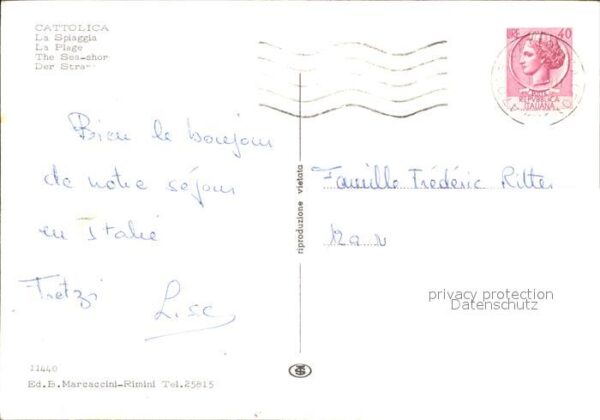 CATTOLICA
La Spiaggia
La Plage
The Sea-shor
Der Stra
LIRE 40
REPVBBLICA
ITALIANA
Bien le bonjour
de notre séjour
en Italie
riproduzione vietata
Famille Frédéric Ritter
privacy protection
Datenschutz
11440
Ed.B. Marcaccini-Rimini Tel.25815